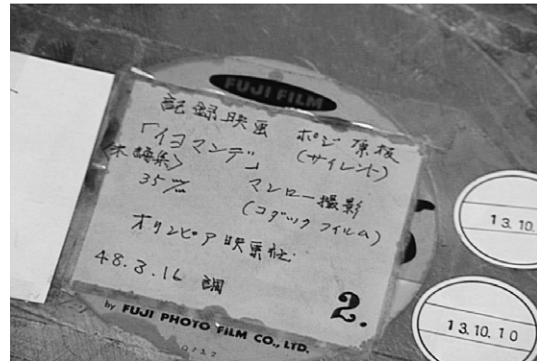 FUJI FILM
記録映画 ポジ原板
「イヨマンデ」(サイレント)
<未編集>
35m/m マンロー撮影
(コダックフィルム)
オリンピア映画社
48.3.16 調
2.
by FUJI PHOTO FILM CO., LTD.
13.10.
13.10.10